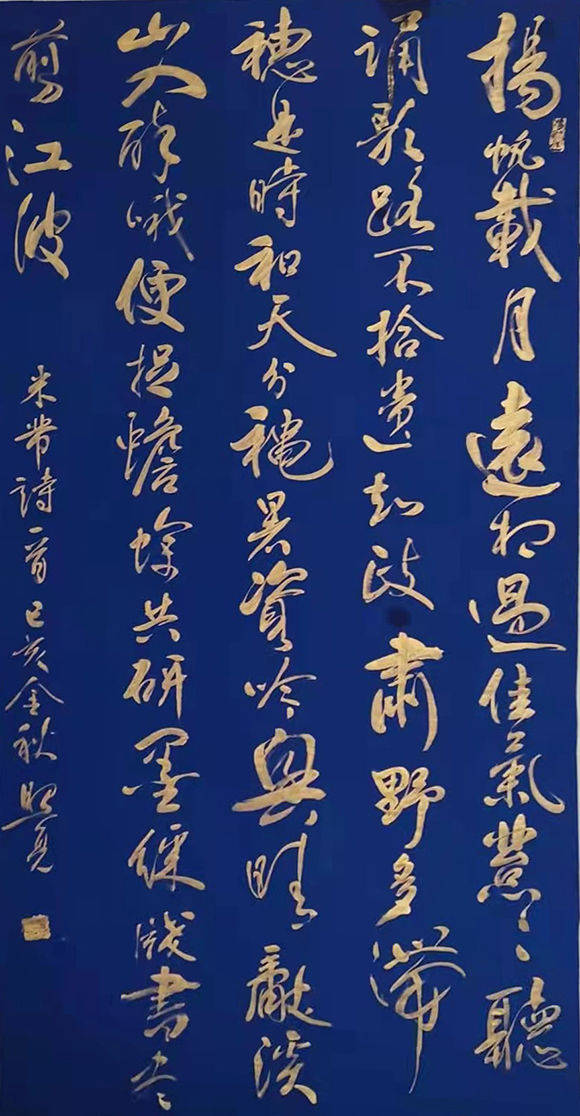 揚帆載月遠相過佳氣葱〻聽
誦歌路不拾遺知政肅野多滯
穗是時和天分穐暑資吟興晴獻溪
山入醉哦便捉蟾蜍共研墨綵牋書盡
剪江波 米芾詩一首 己亥金秋